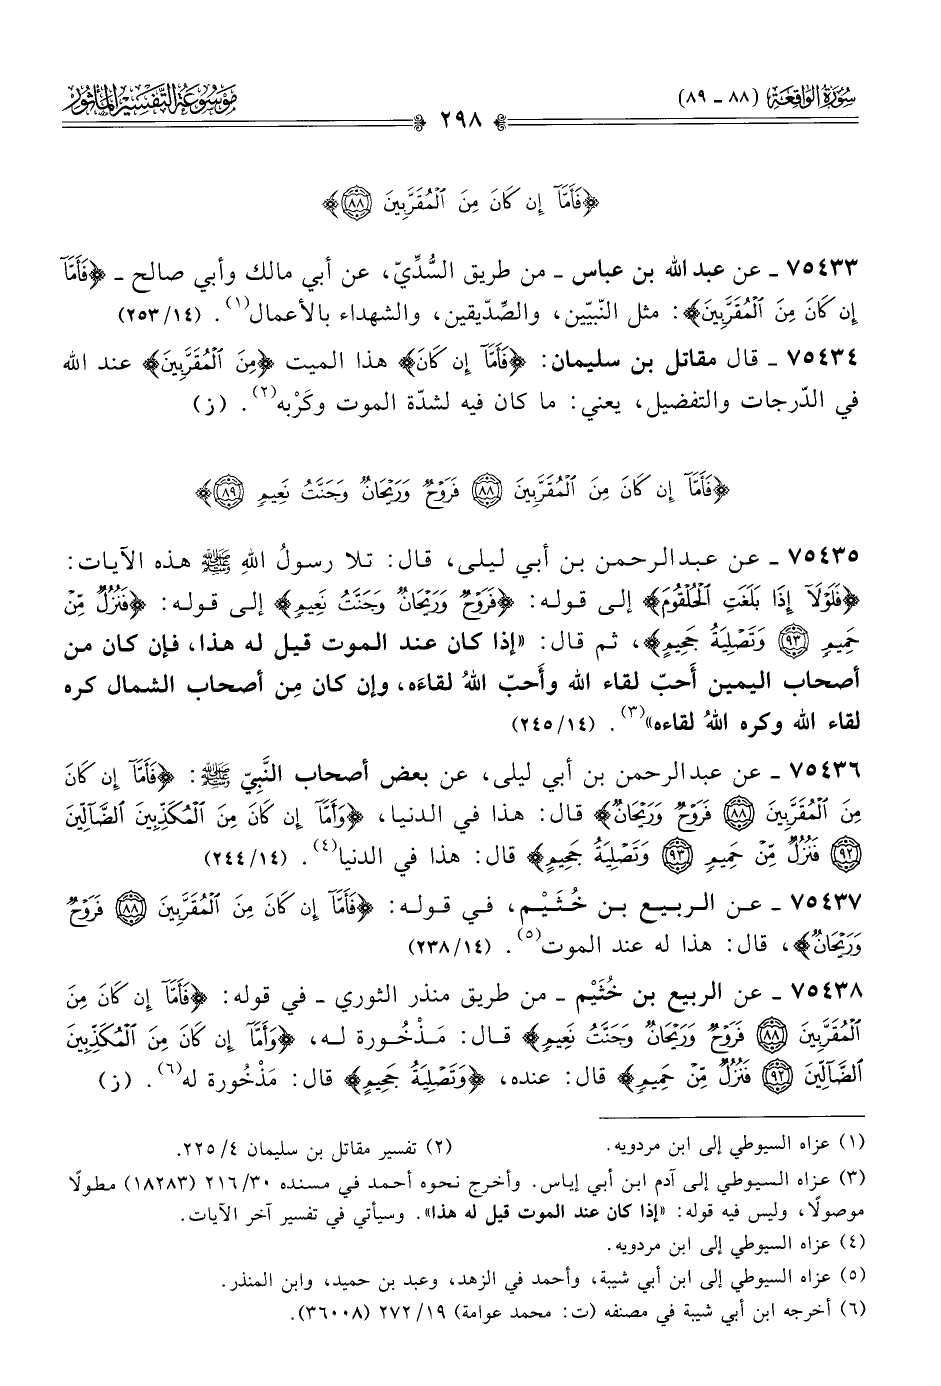 سورة الواقعة (٨٨ - ٨٩)
موسوعة التفسير المأثور
٢٩٨
﴿فَأَمَّآ إِن كَانَ مِنَ ٱلْمُقَرَّبِينَ ٨٨﴾
٧٥٤٣٣ - عن عبد الله بن عباس - من طريق السُّدِّيّ، عن أبي مالك وأبي صالح - ﴿فَأَمَّآ
إِن كَانَ مِنَ ٱلْمُقَرَّبِينَ﴾: مثل النّبيّين، والصِّدّيقين، والشهداء بالأعمال(١). (١٤/٢٥٣)
٧٥٤٣٤ - قال مقاتل بن سليمان: ﴿فَأَمَّآ إِن كَانَ﴾ هذا الميت ﴿مِنَ ٱلْمُقَرَّبِينَ﴾ عند الله
في الدّرجات والتفضيل، يعني: ما كان فيه لشدّة الموت وكَرْبه(٢). (ز)
﴿فَأَمَّآ إِن كَانَ مِنَ ٱلْمُقَرَّبِينَ ٨٨ فَرَوْحٌ وَرَيْحَانٌ وَجَنَّتُ نَعِيمٍ ٨٩﴾
٧٥٤٣٥ - عن عبدالرحمن بن أبي ليلى، قال: تلا رسولُ اللهِ ﷺ هذه الآيات:
﴿فَلَوْلَآ إِذَا بَلَغَتِ ٱلْحُلْقُومَ﴾ إلى قوله: ﴿فَرَوْحٌ وَرَيْحَانٌ وَجَنَّتُ نَعِيمٍ﴾ إلى قوله: ﴿فَنُزُلٌ مِّنْ
حَمِيمٍ ٩٣ وَتَصْلِيَةُ جَحِيمٍ﴾، ثم قال: «إذا كان عند الموت قيل له هذا، فإن كان من
أصحاب اليمين أَحبّ لقاء الله وأَحبّ اللهُ لقاءَه، وإن كان مِن أصحاب الشمال كره
لقاء الله وكره اللهُ لقاءه»(٣). (١٤/٢٤٥)
٧٥٤٣٦ - عن عبدالرحمن بن أبي ليلى، عن بعض أصحاب النَّبِيّ ﷺ: ﴿فَأَمَّآ إِن كَانَ
مِنَ ٱلْمُقَرَّبِينَ ٨٨ فَرَوْحٌ وَرَيْحَانٌ﴾ قال: هذا في الدنيا، ﴿وَأَمَّآ إِن كَانَ مِنَ ٱلْمُكَذِّبِينَ ٱلضَّآلِّينَ
٩٢ فَنُزُلٌ مِّنْ حَمِيمٍ ٩٣ وَتَصْلِيَةُ جَحِيمٍ﴾ قال: هذا في الدنيا(٤). (١٤/٢٤٤)
٧٥٤٣٧ - عن الربيع بن خُثَيْم، في قوله: ﴿فَأَمَّآ إِن كَانَ مِنَ ٱلْمُقَرَّبِينَ ٨٨ فَرَوْحٌ
وَرَيْحَانٌ﴾، قال: هذا له عند الموت(٥). (١٤/٢٣٨)
٧٥٤٣٨ - عن الربيع بن خُثَيْم - من طريق منذر الثوري - في قوله: ﴿فَأَمَّآ إِن كَانَ مِنَ
ٱلْمُقَرَّبِينَ ٨٨ فَرَوْحٌ وَرَيْحَانٌ وَجَنَّتُ نَعِيمٍ﴾ قال: مَذْخُورة له، ﴿وَأَمَّآ إِن كَانَ مِنَ ٱلْمُكَذِّبِينَ
ٱلضَّآلِّينَ ٩٢ فَنُزُلٌ مِّنْ حَمِيمٍ﴾ قال: عنده، ﴿وَتَصْلِيَةُ جَحِيمٍ﴾ قال: مَذْخُورة له(٦). (ز)
(١) عزاه السيوطي إلى ابن مردويه. (٢) تفسير مقاتل بن سليمان ٤/٢٢٥.
(٣) عزاه السيوطي إلى آدم ابن أبي إياس. وأخرج نحوه أحمد في مسنده ٣٠/٢١٦ (١٨٢٨٣) مطولًا
موصولًا، وليس فيه قوله: «إذا كان عند الموت قيل له هذا». وسيأتي في تفسير آخر الآيات.
(٤) عزاه السيوطي إلى ابن مردويه.
(٥) عزاه السيوطي إلى ابن أبي شيبة، وأحمد في الزهد، وعبد بن حميد، وابن المنذر.
(٦) أخرجه ابن أبي شيبة في مصنفه (ت: محمد عوامة) ١٩/٢٧٢ (٣٦٠٠٨).